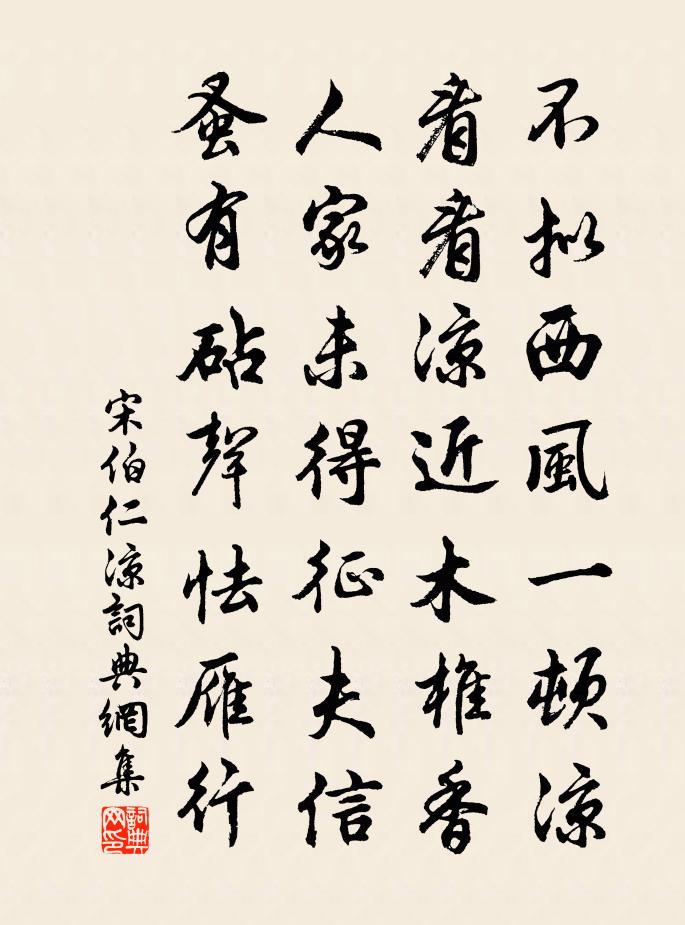 不拟西風一頓涼
看看涼近木椎香
人家未得征夫信
蚤有砧聲怯雁行
宋伯仁涼詞典網集
詞典网印